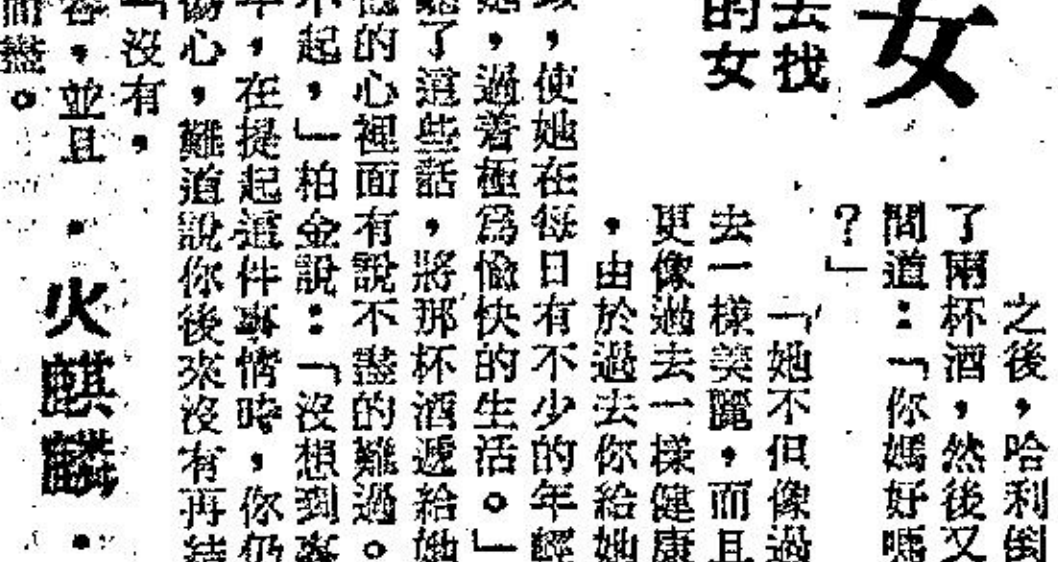 女
去找
的女
之後，哈利倒
了兩杯酒，然後又
問道：「你媽好嗎
？」
「她不但像過
去一樣美麗，而且
更像過去一樣健康
，由於過去你給她
，使她在每日有不少的年輕
，過着極爲愉快的生活。」
了這些話，將那杯酒遞給她
的心裡面有說不盡的難過。
不起，」柏金說：「沒想到事
，在提起這件事情時，你仍
傷心，難道說你後來沒有再結
「沒有，
容，並且
而盡。
・火麒麟・